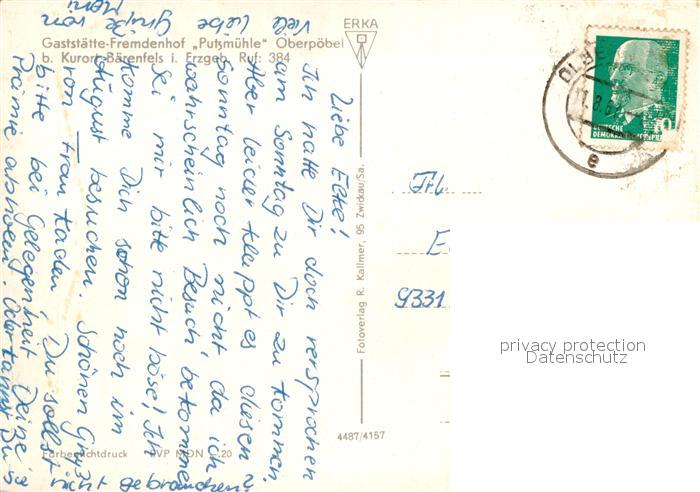 ERKA
Gaststätte-Fremdenhof „Putzmühle" Oberpöbel
b. Kurort Bärenfels i. Erzgeb. Ruf: 384
Liebe Ecke!
Ich hatte Dir doch versprochen
am Sonntag zu Dir zu kommen.
Aber leider klappt es diesen
Sonntag noch nicht da ich
wahrscheinlich Besuch bekomme.
Sei mir bitte nicht böse! Ich
komme Dich schon noch im
August besuchen. Schönen Gruß
von Frau Kaden, Du sollst
bitte bei Gelegenheit Deine
Prämie abholen. Oder kannst Du s
nicht gebrauchen?
Viele liebe
Grüße von
Fotoverlag R. Kallmer, 95 Zwickau/Sa.
4487/4157
Farbenlichtdruck VP MDN -.20
Frl
E
9331
DEUTSCHE
privacy protection
Datenschutz